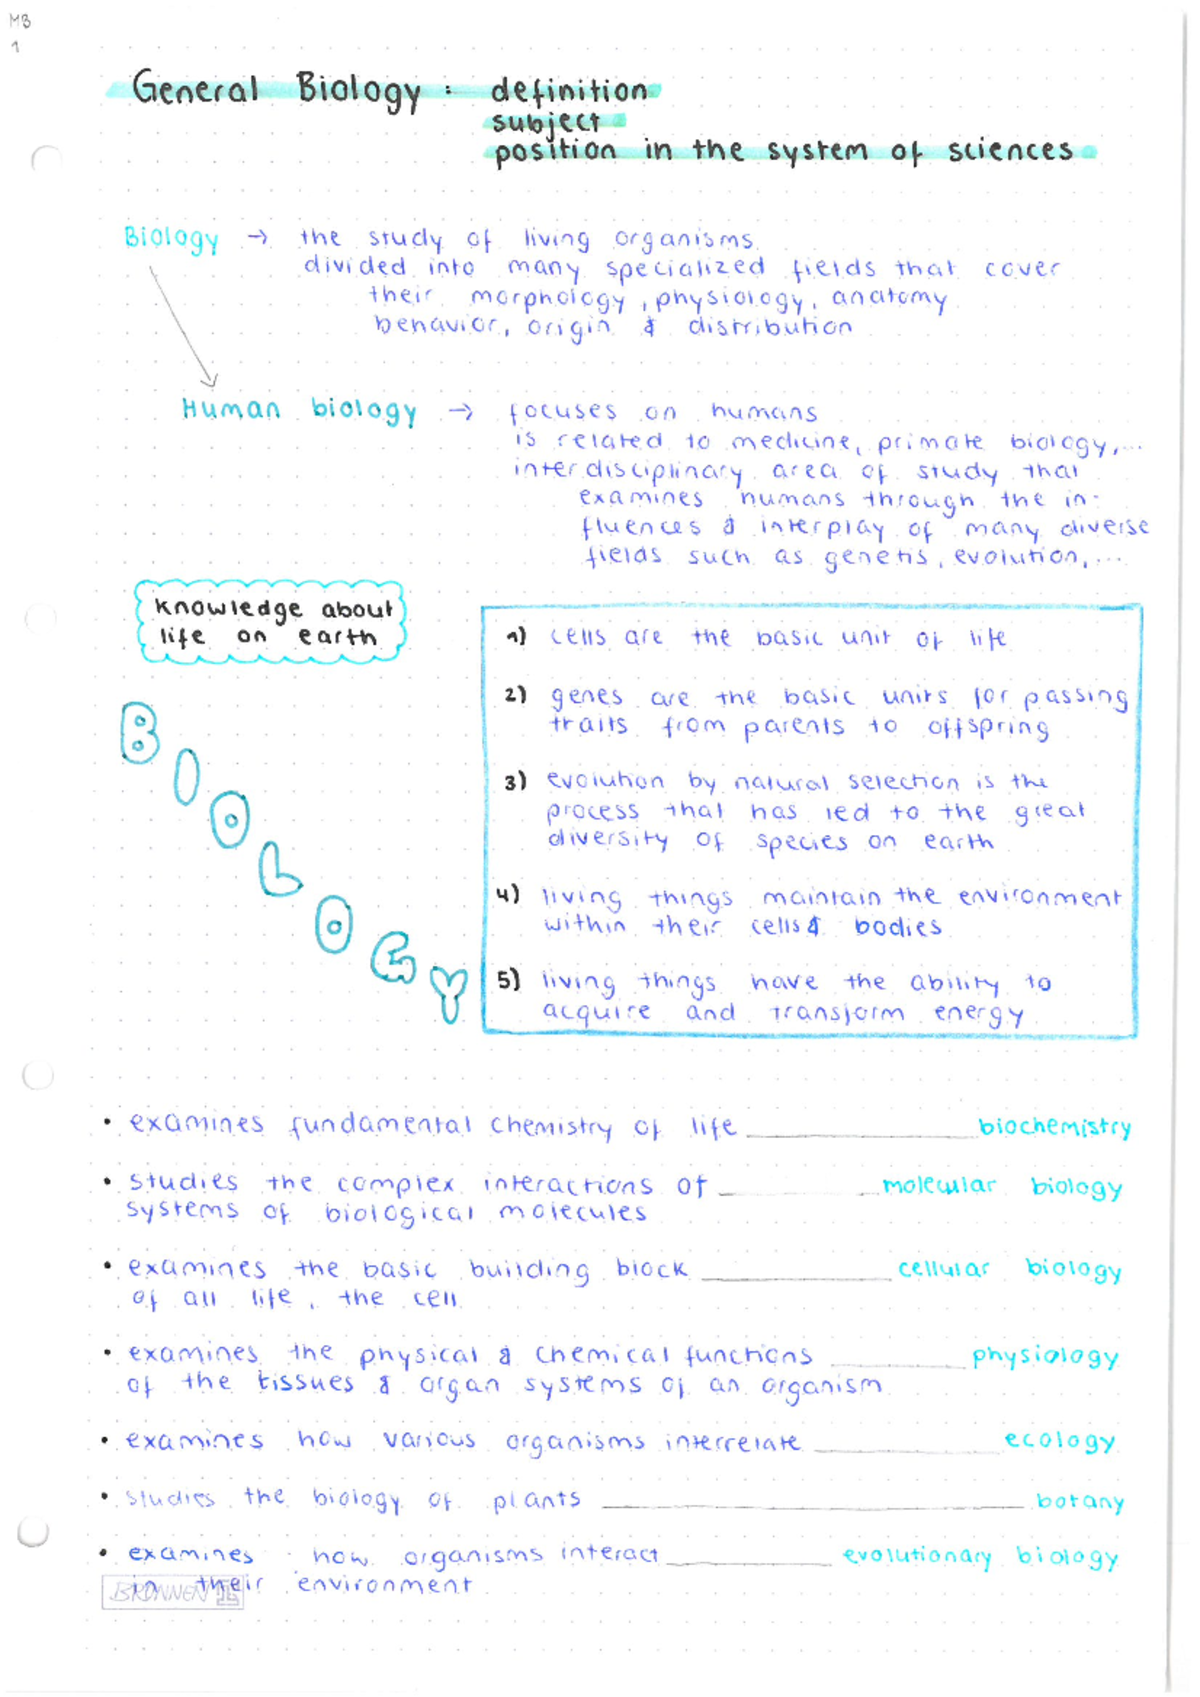 MB
1
General Biology : definition
subject
position in the system of sciences
Biology → the study of living organisms
divided into many specialized fields that cover
their morphology, physiology, anatomy
behavior, origin & distribution
Human biology → focuses on humans
is related to medicine, primate biology,...
interdisciplinary area of study that
examines humans through the in-
fluences & interplay of many diverse
fields such as genetis, evolution,...
knowledge about
life on earth
BIOLOGY
1) cells are the basic unit of life
2) genes are the basic units for passing
traits from parents to offspring
3) evolution by natural selection is the
process that has led to the great
diversity of species on earth
4) living things maintain the environment
within their cells & bodies
5) living things have the ability to
acquire and transform energy
• examines fundamental chemistry of life ____________ biochemistry
• studies the complex interactions of ________ molecular biology
systems of biological molecules
• examines the basic building block __________ cellular biology
of all life, the cell
• examines the physical & chemical functions _______ physiology
of the tissues & organ systems of an organism
• examines how various organisms interrelate __________ ecology
• studies the biology of plants ______________________ botany
• examines how organisms interact _________ evolutionary biology
in their environment
BRUNNEN